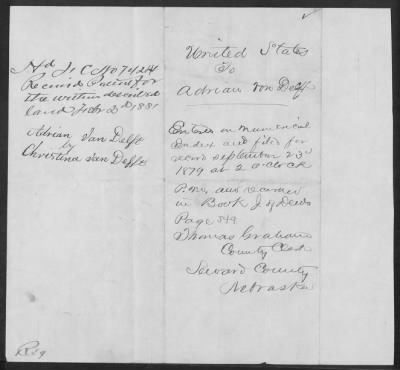 Hd J. C No 7424
Received Patent for
the within described
land Feb 2d 1881
Adrian Van Delft
by
Christina van Delft
United States
To
Adrian von Delft
Entered on numerical
Index and filed for
record September 23d
1879 at 2 o clock
P.M. and recorded
in Book J of Deeds
Page 544
Thomas Graham
County Clerk
Seward County
Nebraska